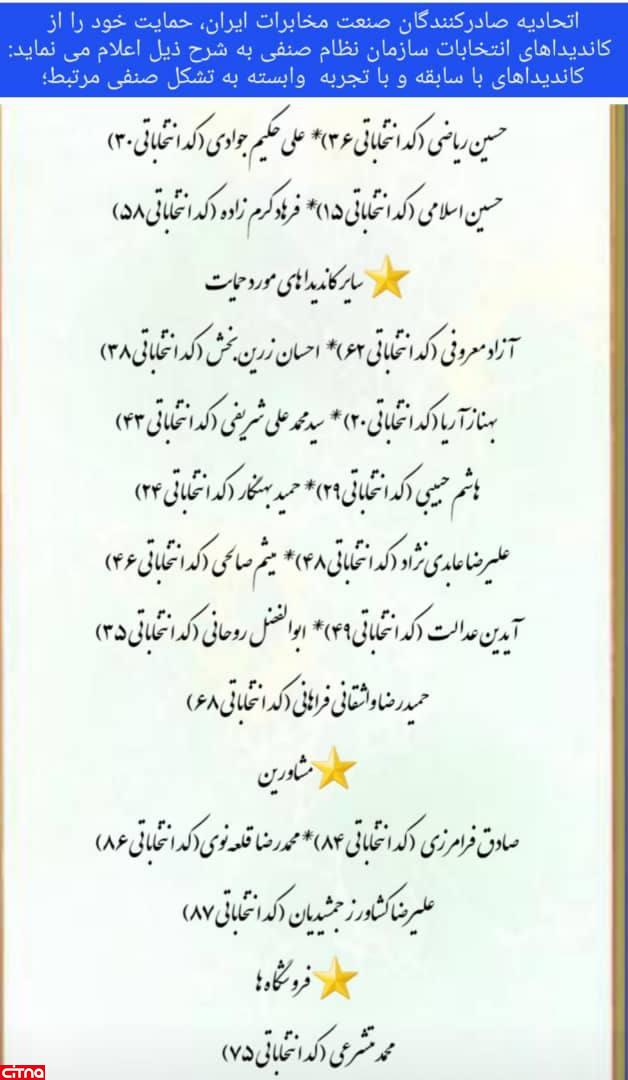 اتحادیه صادرکنندگان صنعت مخابرات ایران، حمایت خود را از
کاندیداهای انتخابات سازمان نظام صنفی به شرح ذیل اعلام می نماید:
کاندیداهای با سابقه و با تجربه وابسته به تشکل صنفی مرتبط؛
حسین ریاضی (کد انتخاباتی ۳۶)* علی حکیم جوادی (کد انتخاباتی ۳۰)
حسین اسلامی (کد انتخاباتی ۱۵)* فرهاد کرم زاده (کد انتخاباتی ۵۸)
سایر کاندیداهای مورد حمایت
آزاد معروفی (کد انتخاباتی ۶۲)* احسان زرین بخش (کد انتخاباتی ۳۸)
بهناز آریا (کد انتخاباتی ۲۰)* سید محمد علی شریفی (کد انتخاباتی ۴۳)
هاشم حبیبی (کد انتخاباتی ۲۹)* حمید بهنگار (کد انتخاباتی ۲۴)
علیرضا عابدی نژاد (کد انتخاباتی ۴۸)* میثم صالحی (کد انتخاباتی ۴۶)
آیدین عدالت (کد انتخاباتی ۴۹)* ابوالفضل روحانی (کد انتخاباتی ۳۵)
حمیدرضا واشقانی فراهانی (کد انتخاباتی ۶۸)
مشاورین
صادق فرامرزی (کد انتخاباتی ۸۴)* محمدرضا قلعه نوی (کد انتخاباتی ۸۶)
علیرضا کشاورز جمشیدیان (کد انتخاباتی ۸۷)
فروشگاه ها
محمد متشرعی (کد انتخاباتی ۷۵)
CITNA